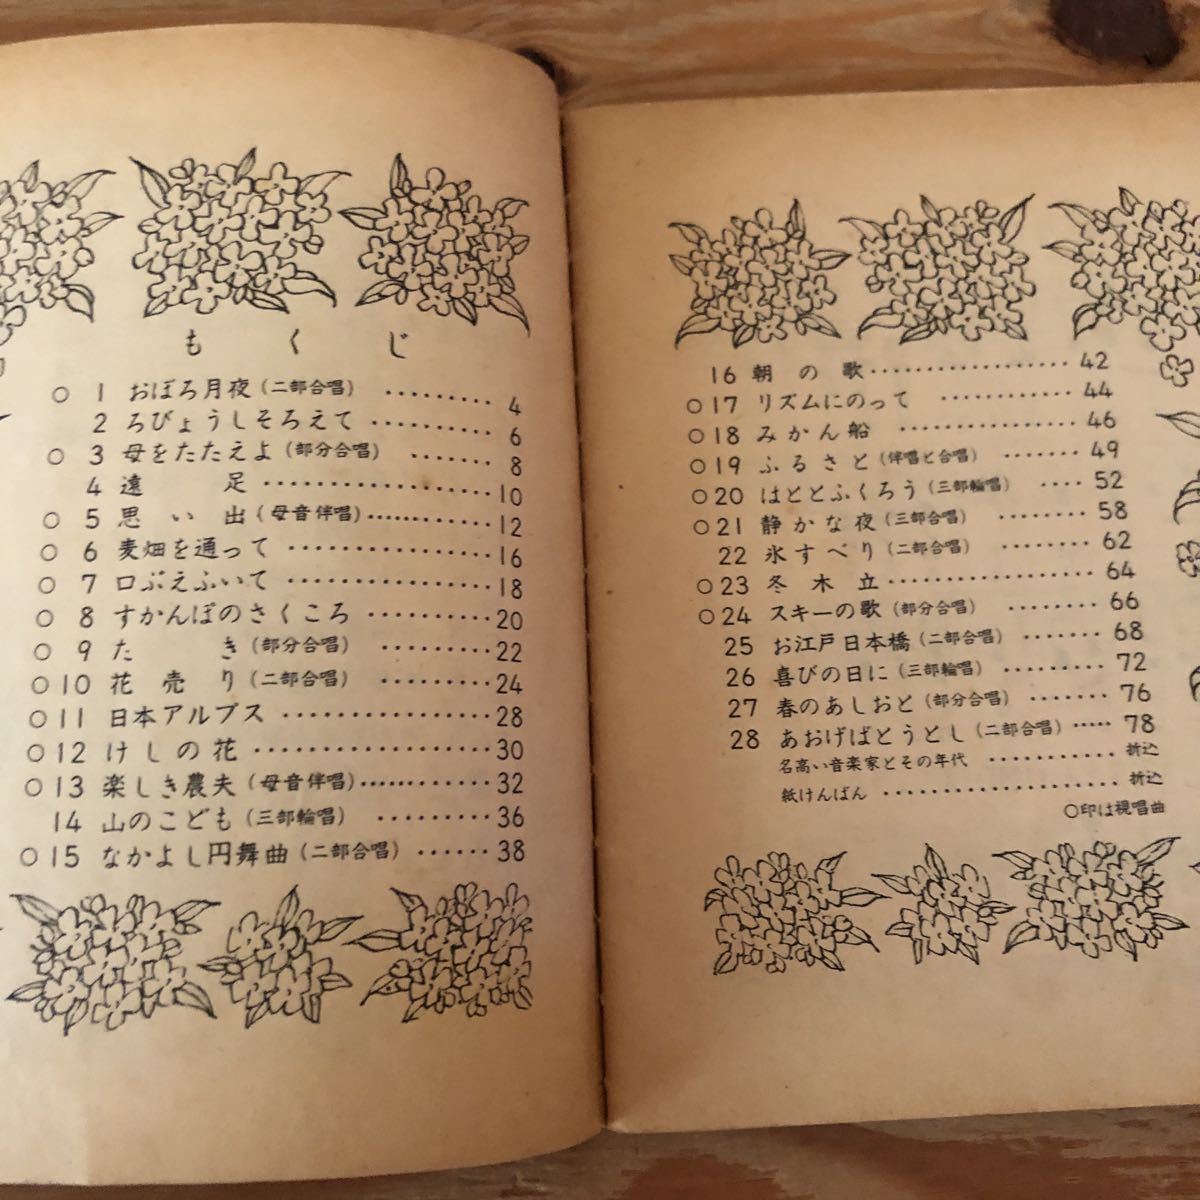 もくじ
○ 1 おぼろ月夜(二部合唱) ‥‥‥‥ 4
2 ろびょうしそろえて ‥‥‥‥ 6
○ 3 母をたたえよ(部分合唱) ‥‥‥‥ 8
4 遠足 ‥‥‥‥ 10
○ 5 思い出(母音伴唱) ‥‥‥‥ 12
○ 6 麦畑を通って ‥‥‥‥ 16
○ 7 口ぶえふいて ‥‥‥‥ 18
○ 8 すかんぽのさくころ ‥‥‥‥ 20
○ 9 たき(部分合唱) ‥‥‥‥ 22
○10 花売り(二部合唱) ‥‥‥‥ 24
○11 日本アルプス ‥‥‥‥ 28
○12 けしの花 ‥‥‥‥ 30
○13 楽しき農夫(母音伴唱) ‥‥‥‥ 32
14 山のこども(三部輪唱) ‥‥‥‥ 36
○15 なかよし円舞曲(二部合唱) ‥‥‥‥ 38
16 朝の歌 ‥‥‥‥ 42
○17 リズムにのって ‥‥‥‥ 44
○18 みかん船 ‥‥‥‥ 46
○19 ふるさと(伴唱と合唱) ‥‥‥‥ 49
○20 はととふくろう(三部輪唱) ‥‥‥‥ 52
○21 静かな夜(三部合唱) ‥‥‥‥ 58
22 氷すべり(二部合唱) ‥‥‥‥ 62
○23 冬木立 ‥‥‥‥ 64
○24 スキーの歌(部分合唱) ‥‥‥‥ 66
25 お江戸日本橋(二部合唱) ‥‥‥‥ 68
26 喜びの日に(三部輪唱) ‥‥‥‥ 72
27 春のあしおと(部分合唱) ‥‥‥‥ 76
28 あおげばとうとし(二部合唱) ‥‥‥‥ 78
名高い音楽家とその年代 ‥‥‥‥ 折込
紙けんばん ‥‥‥‥ 折込
○印は視唱曲